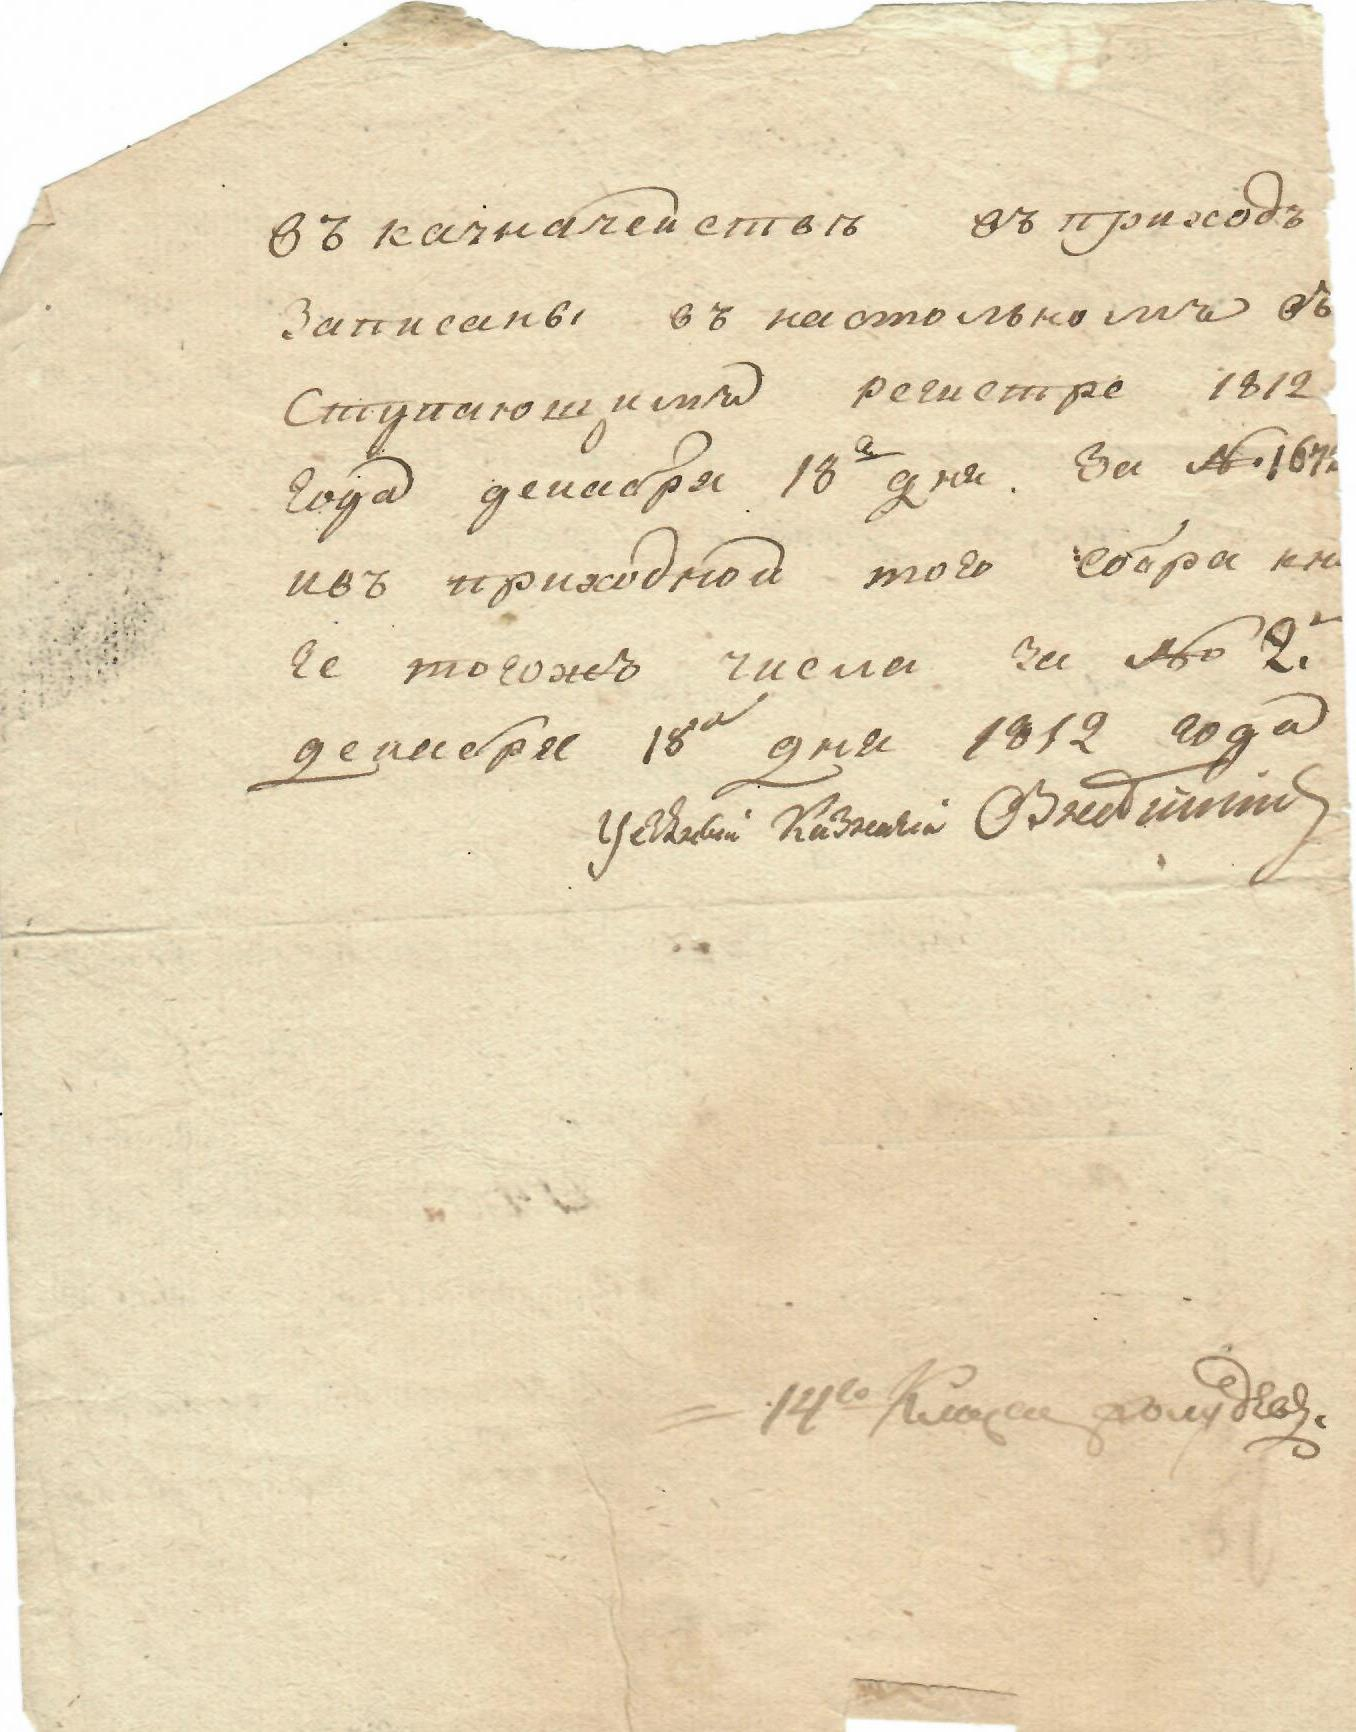 въ казначействѣ въ приходъ
записаны въ настольномъ въ
ступающимъ регистре 1812
года декабря 18а дня. За № 167
ивъ приходной того сбора кни
ге тогожъ числа за № 2.
декабря 18а дня 1812 года
Уездный Казначей
14го Класса